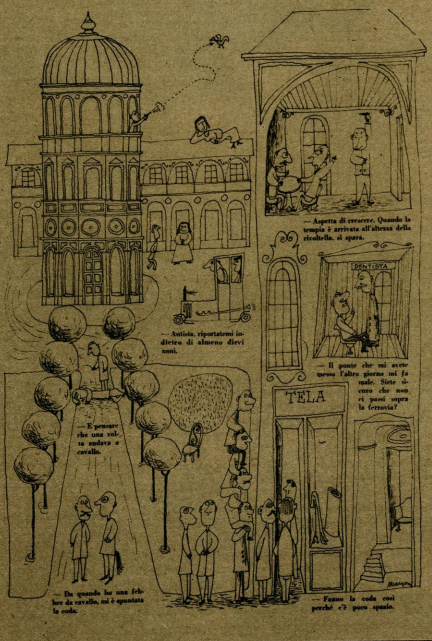 — Aspetta di crescere. Quando la
tempia è arrivata all'altezza della
rivoltella, si spara.
DENTISTA
— Autista, riportatemi in-
dietro di almeno dieci
anni.
— Il ponte che mi avete
messo l'altro giorno mi fa
male. Siete si-
curo che non
ci passi sopra
la ferrovia?
TELA
— E pensare
che una vol-
ta andava a
cavallo.
— Da quando ho una feb-
bre da cavallo, mi è spuntata
la coda.
— Fanno la coda così
perché c'è poco spazio.